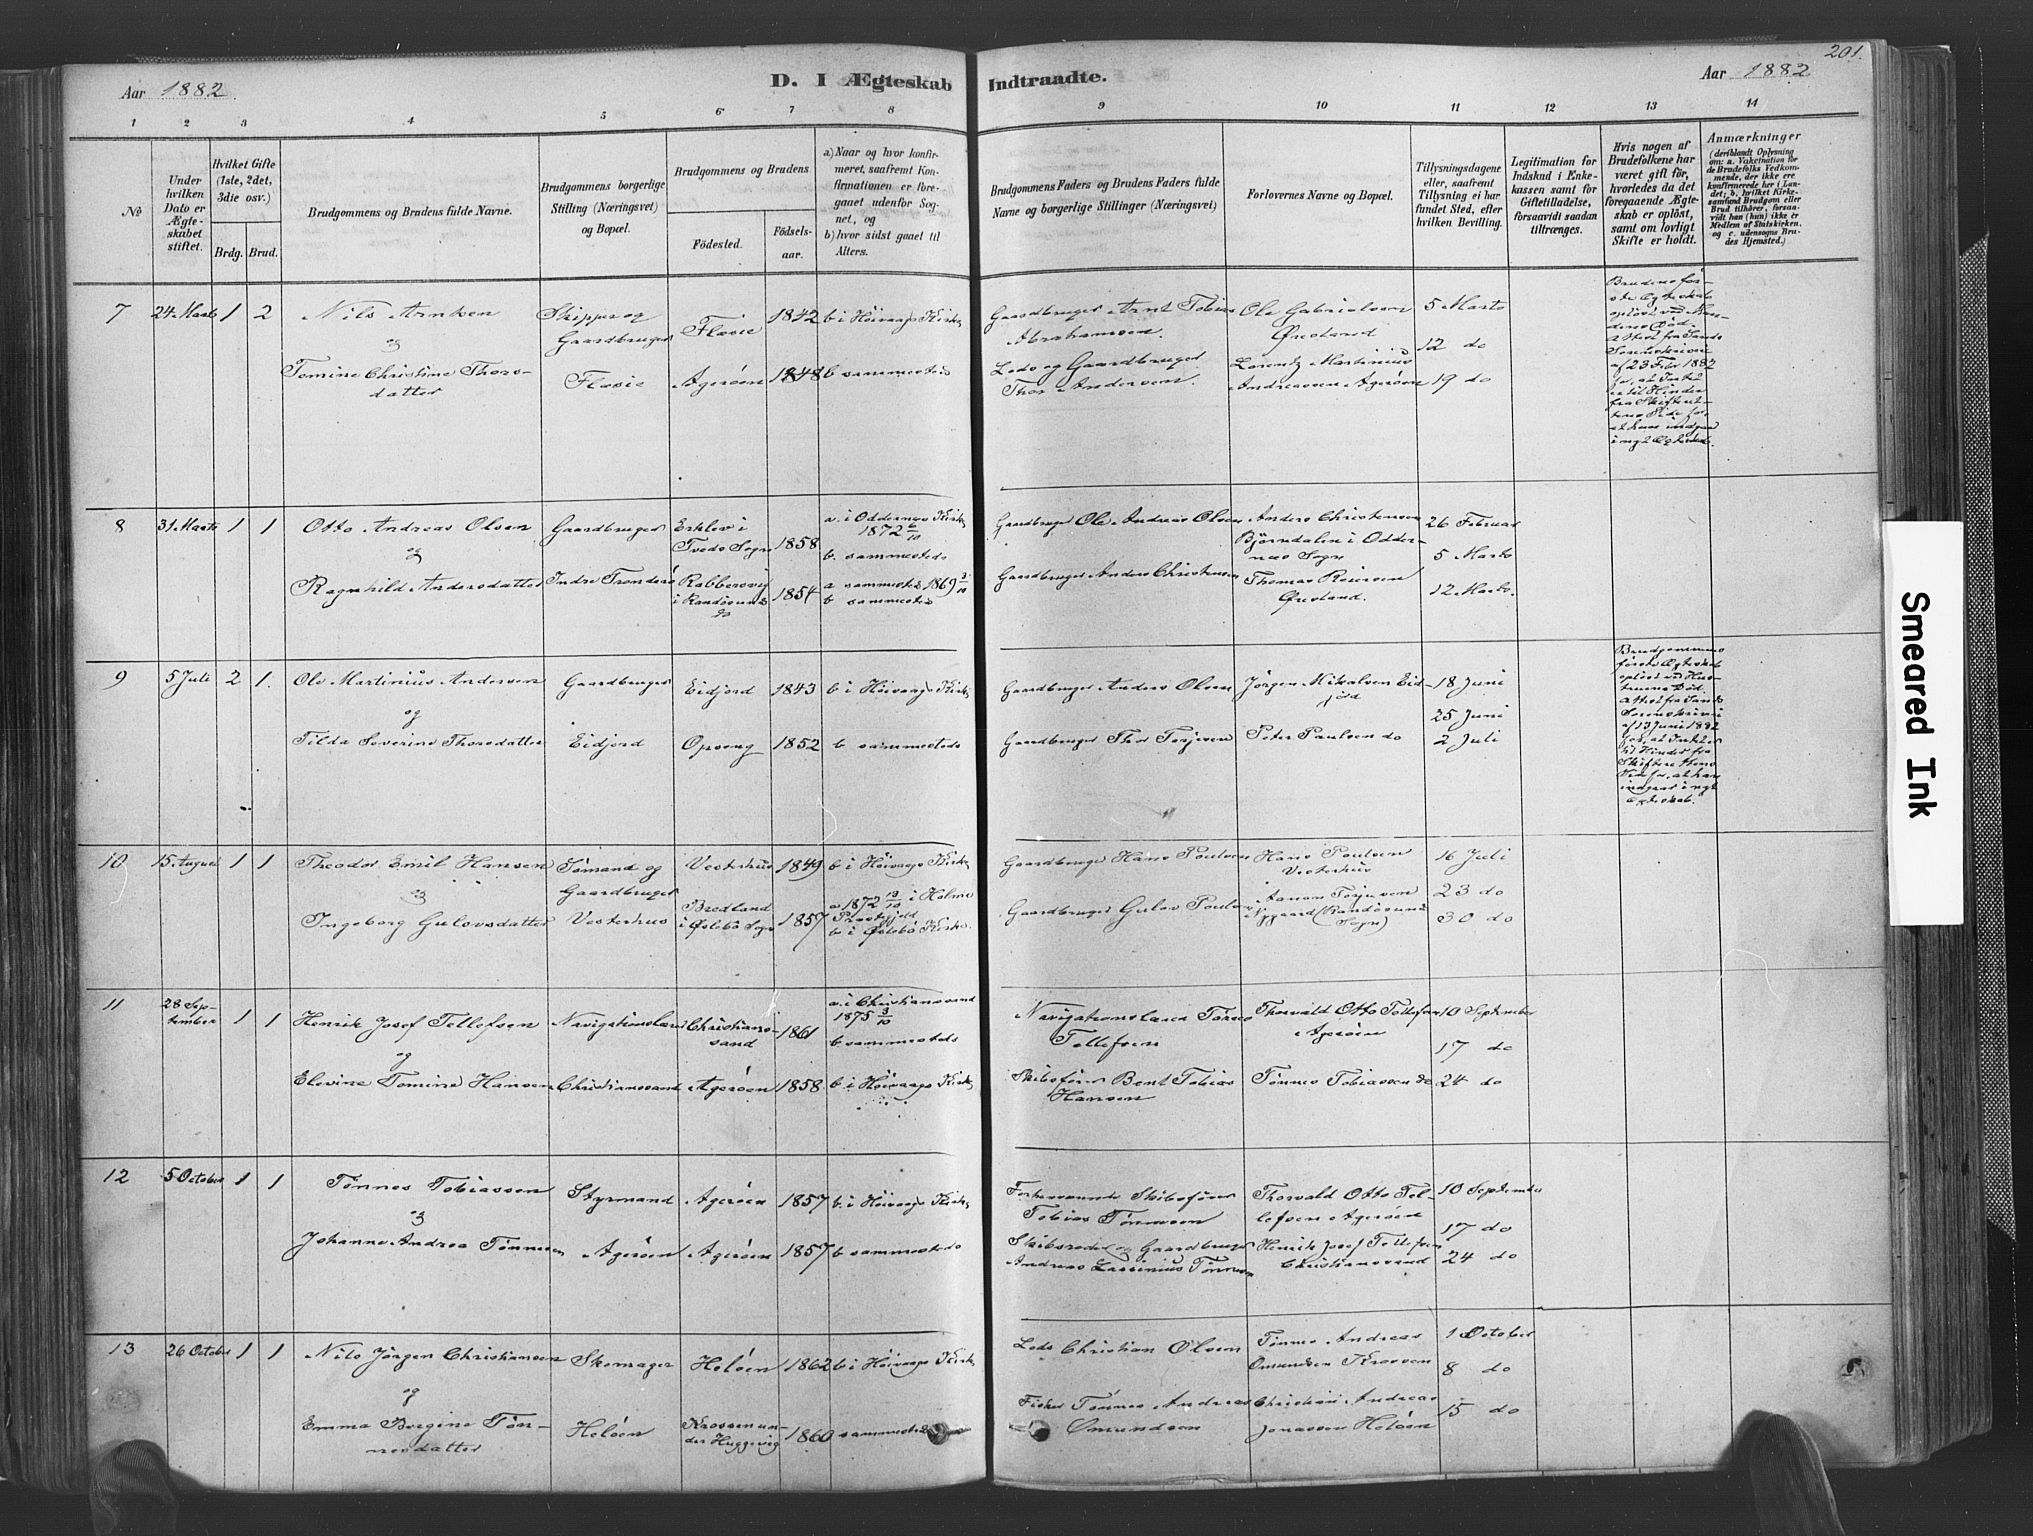 201.
Aar 1882
D. I Ægteskab Indtraadte.
Aar 1882
1 2 3 4 5 6 7 8 9 10 11 12 13 14
No
Under hvilken Dato er Ægteskabet stiftet.
Hvilket Gifte (1ste, 2det, 3die osv.)
Brdg. Brud.
Brudgommens og Brudens fulde Navne.
Brudgommens borgerlige Stilling (Næringsvei) og Bopæl.
Brudgommens og Brudens
Födested.
Födsels-aar.
a) Naar og hvor konfirmeret, saafremt Konfirmationen er foregaaet udenfor Sognet, og
b) hvor sidst gaaet til Alters.
Brudgommens Faders og Brudens Faders fulde Navne og borgerlige Stillinger (Næringsvei)
Forlovernes Navne og Bopæl.
Tillysningsdagene eller, saafremt Tillysning ei har fundet Sted, efter hvilken Bevilling.
Legitimation for Indskud i Enkekassen samt for Giftetilladelse, forsaavidt saadan tiltrænges.
Hvis nogen af Brudefolkene har været gift för, hvorledes da det foregaaende Ægteskab er oplöst, samt om lovligt Skifte er holdt.
Anmærkninger
(deriblandt Oplysning om: a. Vakcination for de Brudefolks Vedkommende, der ikke ere konfirmerede her i Landet; b. hvilket Kirkesamfund Brudgom eller Brud tilhörer, forsaavidt han (hun) ikke er Medlem af Statskirken, og c. udensogns Brudes Hjemsted.)
7
24 Marts
1
2
Nils Arntsen
og
Tomine Christine Thorsdatter
Skipper og
Gaardbruger
Fløsie
Fløsie
Agerøen
1842
1848
b i Höivaags Kirke
b sammesteds
Gaardbruger Arnt Tobias
Abrahamsen.
Lods og Gaardbruger
Thor Andersen.
Ole Gabrielsen
Øresland
Lorentz Martinius
Andreassen Agerøen
5 Marts
12 do
19 do
Brudens første Egteskab
oplöst ved Mandens Död.
Attest fra Sands
Sorenskriver
af 23 Febr 1882
for, at Intet
er til Hinder
fra Skifterettens Side for
at hun indgaar
i nyt Egteskab.
8
31 Marts
1
1
Otto Andreas Olsen
og
Ragnhild Andersdatter
Gaardbruger
Indre Trøndorö
Erklev i
Tveds Sogn
Rabbersvig
i Randösund
1858
1854
a. i Oddernæs Kirke
1872 6/10
b. sammesteds
a sammesteds 1869 3/10
b sammesteds
Gaardbruger Ole Andreas Olsen
Gaardbruger Anders Christensen
Anders Christensen
Bjørndalen i Oddernæs Sogn
Thomas Reiersen
Øresland.
26 Februar
5 Marts
12 Marts.
9
5 Juli
2
1.
Ole Martinius Andersen
og
Tilda Severine Thorsdatter
Gaardbruger
Eidjord
Eidjord
Opseng
1843
1852
b i Höivaags Kirke
b sammesteds
Gaardbruger Anders Olsen
Gaardbruger Thor Torjesen
Jörgen Mikalsen Eidjord
Peter Paulsen do
18 Juni
25 Juni
2 Juli
Brudgommens
første Egteskab
oplöst ved Hustruens Död.
Attest fra Sands
Sorenskriveri
af 13 Juni 1882
for, at Intet er
til Hinder fra
Skifterettens
Side for, at han
indgaar i nyt
Egteskab.
10
15 August
1
1
Theodor Emil Hansen
og
Ingeborg Gulovsdatter
Sømand og
Gaardbruger
Vesterhus
Vesterhus
Bredland
i Øslebö Sogn
1849
1857
b i Höivaags Kirke
a 1872 13/10 i Holme
Præstgjeld
b i Øslebö Kirke.
Gaardbruger Hans Poulsen
Gaardbruger Gulov Poulsen
Hans Poulsen
Vesterhus
Aanon Torjussen
Nygaard (Randösund
Sogn)
16 Juli
23 do
30 do
11
28 September
1
1
Henrik Josef Tellefsen
og
Elevine Tomine Hansen
Navigationslærer
Christianssand
Christianssand
Agerøen
1861
1858
a. i Christianssand
1875 3/10
b sammesteds
b i Höivaags Kirke
Navigationslærer Tørres
Tellefsen
Skibsfører Bent Tobias
Hansen
Thorvald Otto Tellefsen
Agerøen
Tønnes Tobiassen do
10 September
17 do
24 do
12
5 October
1
1
Tønnes Tobiassen
og
Johanne Andrea Tønnesen
Styrmand
Agerøen
Agerøen
Agerøen
1857
1857
b. i Höivaags Kirke
b sammesteds
Forhenværende Skibsfører
Tobias Tønnesen
Skibsreder og Gaardbruger
Andreas Lassinius Tønnesen
Thorvald Otto Tellefsen Agerøen
Henrik Josef Tellefsen
Christianssand
10 September
17 do
24 do
13
26 October
1
1
Nils Jörgen Christiansen
og
Emma Bergine Tønnesdatter
Skomager
Heløen
Heløen
Krossen under Huggevig
1862
1860
b i Höivaags Kirke
sammesteds
Lods Christian Olsen
Fisker Tønnes Andreas
Omundsen
Tønnes Andreas
Omundsen Krossen
Christian Andreas
Jonassen Heløen
1 October
8 do
15 do
Smeared Ink